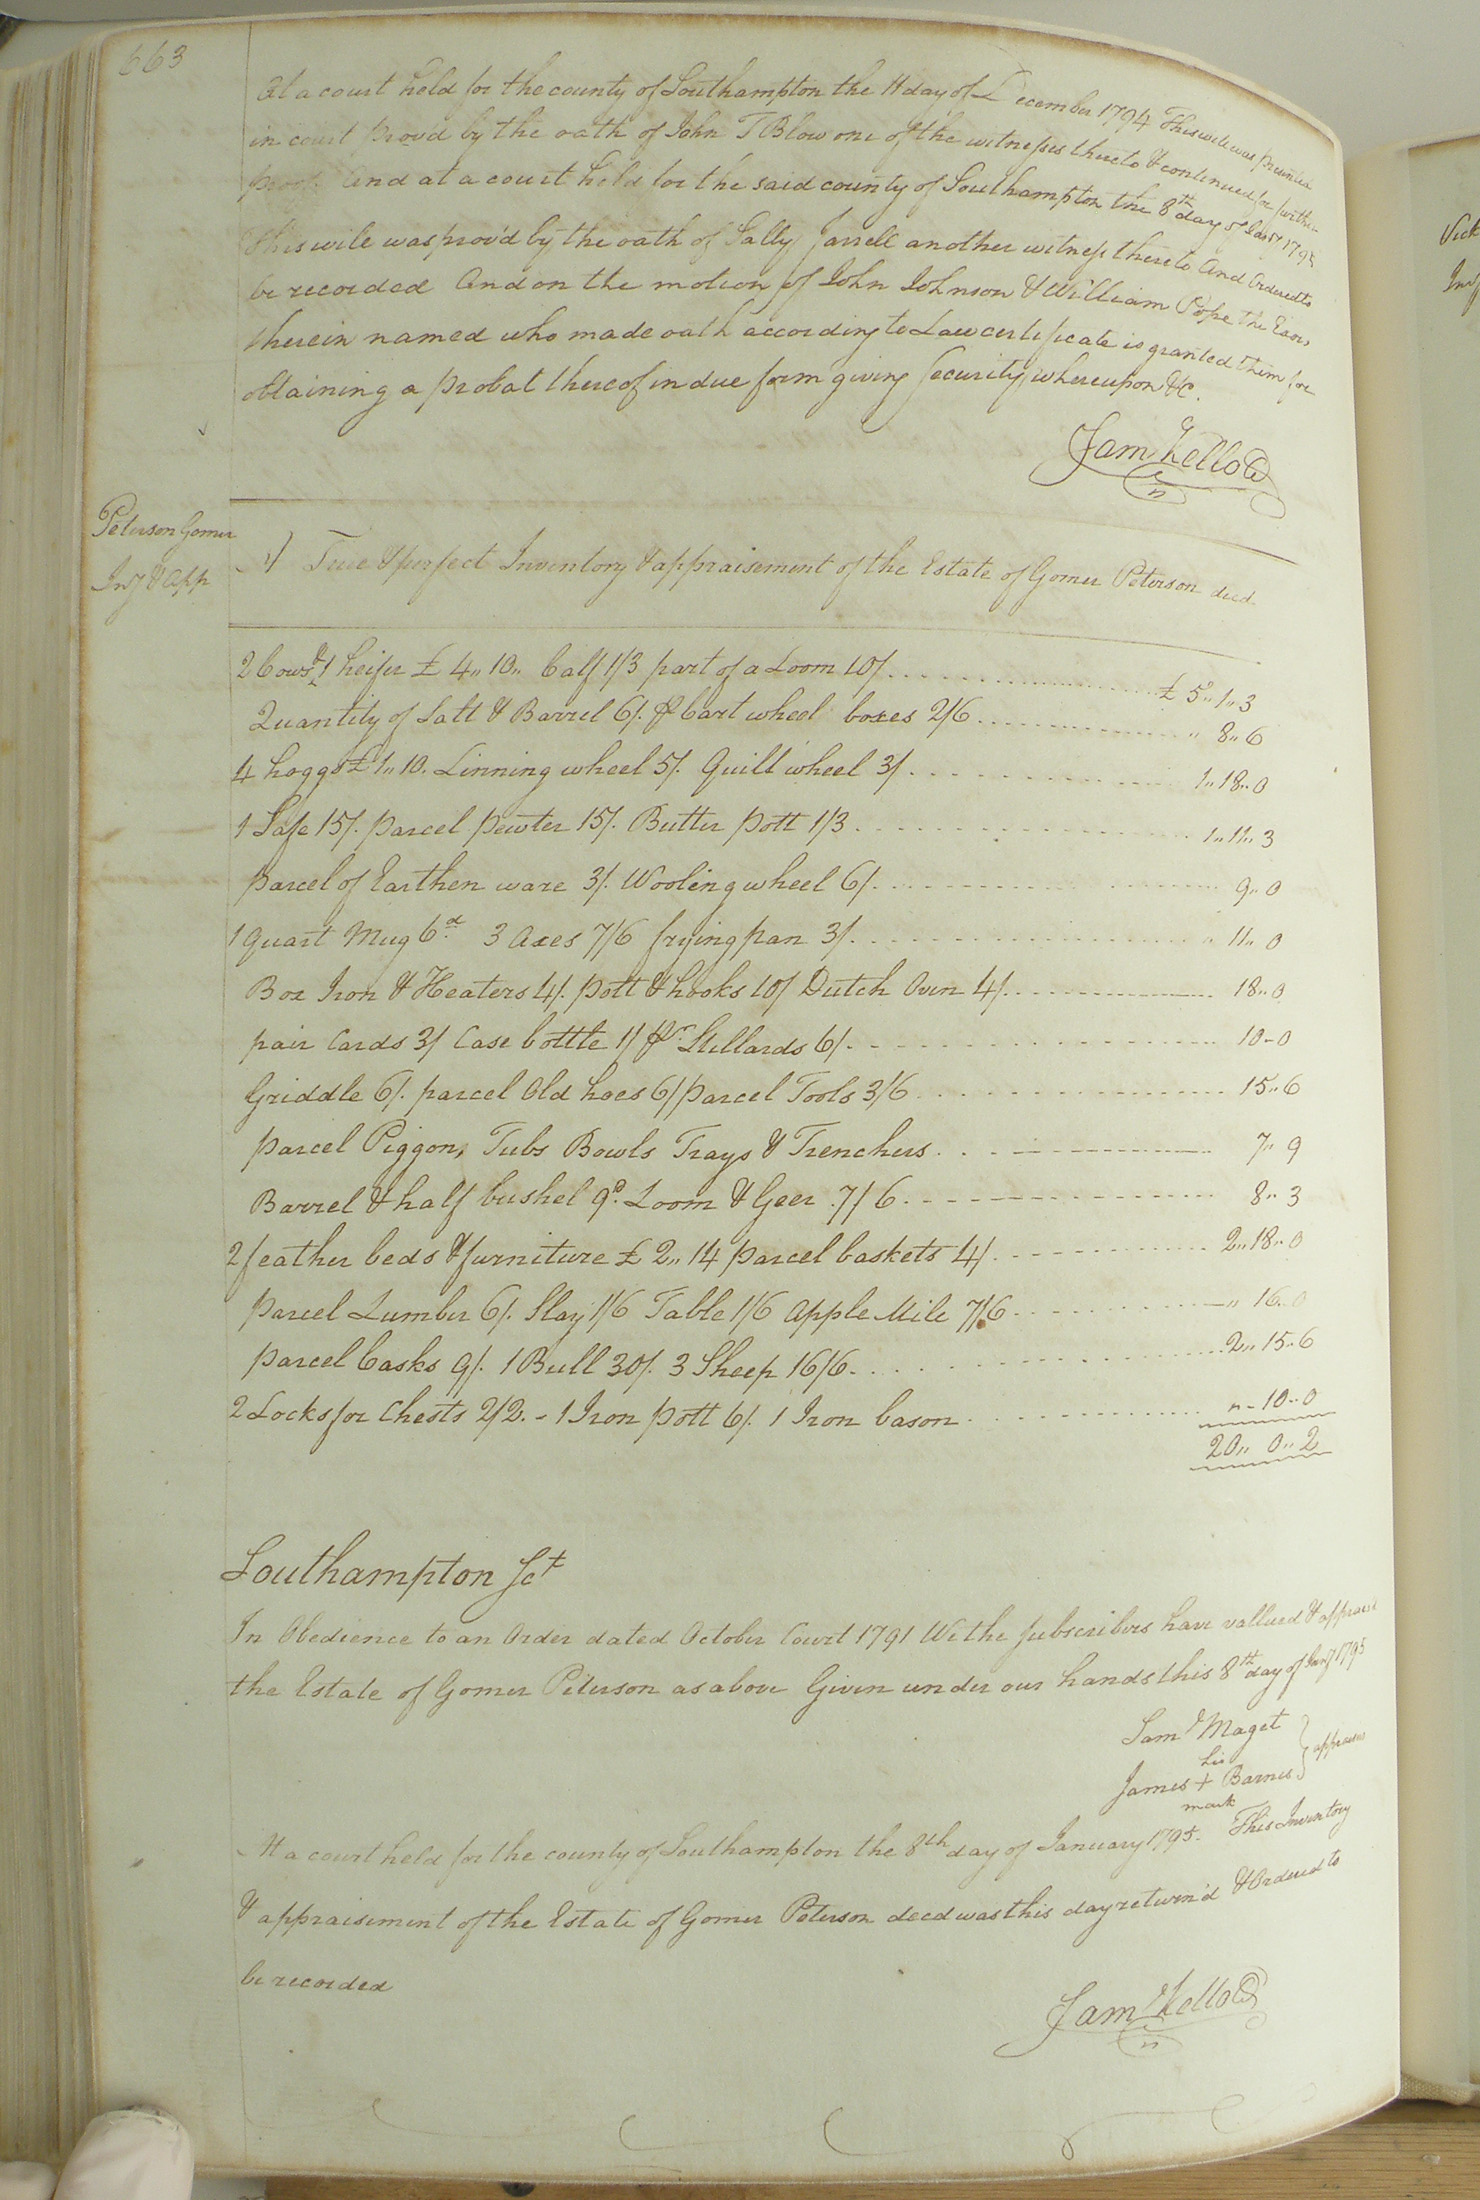 663
At a court held for the county of Southampton the 11 day of December 1794 This will was presented
in court prov'd by the oath of John T Blow one of the witnesses thereto & continued for further
proof. And at a court held for the said county of Southampton the 8th day of Jany 1795
this will was prov'd by the oath of Sally Jarrell another witness thereto And Ordered to
be recorded And on the motion of John Johnson & William Pope the Exors
therein named who made oath according to Law certificate is granted them for
obtaining a probat thereof in due form giving security whereupon &c.
Saml Kello C
Peterson Gomer
Invy & App
A True & perfect Inventory & appraisement of the Estate of Gomer Peterson decd
2 Cows & 1 heifer £ 4,, 10,, Calf 1/3 part of a Loom 10/ £ 5,, 1,, 3
Quantity of Salt & Barrel 6/. pr Cart wheel boxes 2/6 ,, 8,, 6
4 hoggs £1,, 10. Linning wheel 5/. Quill wheel 3/ 1,, 18,, 0
1 Safe 15/. parcel pewter 15/. Butter pott 1/3 1,, 11,, 3
parcel of Earthen ware 3/. Wooling wheel 6/. 9,, 0
1 quart Mug 6d 3 axes 7/6 frying pan 3/. ,, 11,, 0
Box Iron & Heaters 4/. pott & hooks 10/ Dutch Oven 4/. 18,, 0
pair Cards 3/ Case bottle 1/ pr Stillards 6/. 10-0
Griddle 6/. parcel Old hoes 6/ parcel Tools 3/6 15,, 6
parcel Piggons, Tubs Bowls Trays & Trenchers 7,, 9
Barrel & half bushel 9d. Loom & Geer 7/6 8,, 3
2 feather beds & furniture £ 2,, 14 parcel baskets 4/. 2,, 18,, 0
parcel Lumber 6/. Slay 1/6 Table 1/6 apple Mile 7/6 ,, 16,, 0
parcel Casks 9/. 1 Bull 30/. 3 Sheep 16/6 2,, 15,, 6
2 Locks for Chests 2/2. - 1 Iron pott 6/. 1 Iron bason ,, - 10,, 0
20,, 0,, 2
Southampton Sct
In Obedience to an Order dated October Court 1791 We the subscribers have vallued & appraisd
the Estate of Gomer Peterson as above Given under our hands this 8th day of Jany 1795
Saml Maget
his
James + Barnes } appraisers
mark
At a court held for the county of Southampton the 8th day of January 1795. This Inventory
& appraisement of the Estate of Gomer Peterson decd was this day return'd & Ordered to
be recorded
Saml Kello C